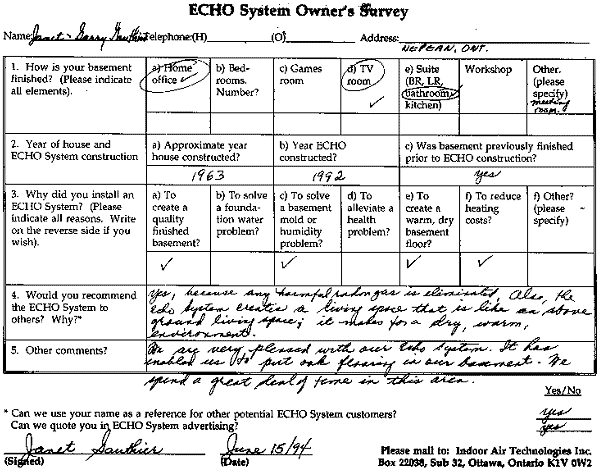 ECHO System Owner's Survey
Name: Janet & Garry Gauthier Telephone:(H) (O) Address: NEPEAN, ONT.
1. How is your basement finished? (Please indicate all elements).
a) Home office ✓
b) Bedrooms. Number?
c) Games room
d) TV room ✓
e) Suite (BR, LR, bathroom, kitchen)
Workshop
Other. (please specify) meeting room.
2. Year of house and ECHO System construction
a) Approximate year house constructed? 1963
b) Year ECHO constructed? 1992
c) Was basement previously finished prior to ECHO construction? yes
3. Why did you install an ECHO System? (Please indicate all reasons. Write on the reverse side if you wish).
a) To create a quality finished basement? ✓
b) To solve a foundation water problem?
c) To solve a basement mold or humidity problem? ✓
d) To alleviate a health problem?
e) To create a warm, dry basement floor? ✓
f) To reduce heating costs? ✓
f) Other? (please specify)
4. Would you recommend the ECHO System to others? Why?*
Yes, because any harmful radon gas is eliminated. Also, the
echo system creates a living space that is like an above
ground living space; it makes for a dry, warm,
environment.
5. Other comments?
We are very pleased with our Echo System. It has
enabled us to put oak flooring in our basement. We
spend a great deal of time in this area.
Yes/No
* Can we use your name as a reference for other potential ECHO System customers? yes
Can we quote you in ECHO System advertising? yes
Janet Gauthier June 15/94
(Signed) (Date)
Please mail to: Indoor Air Technologies Inc.
Box 22038, Sub 32, Ottawa, Ontario K1V 0W2